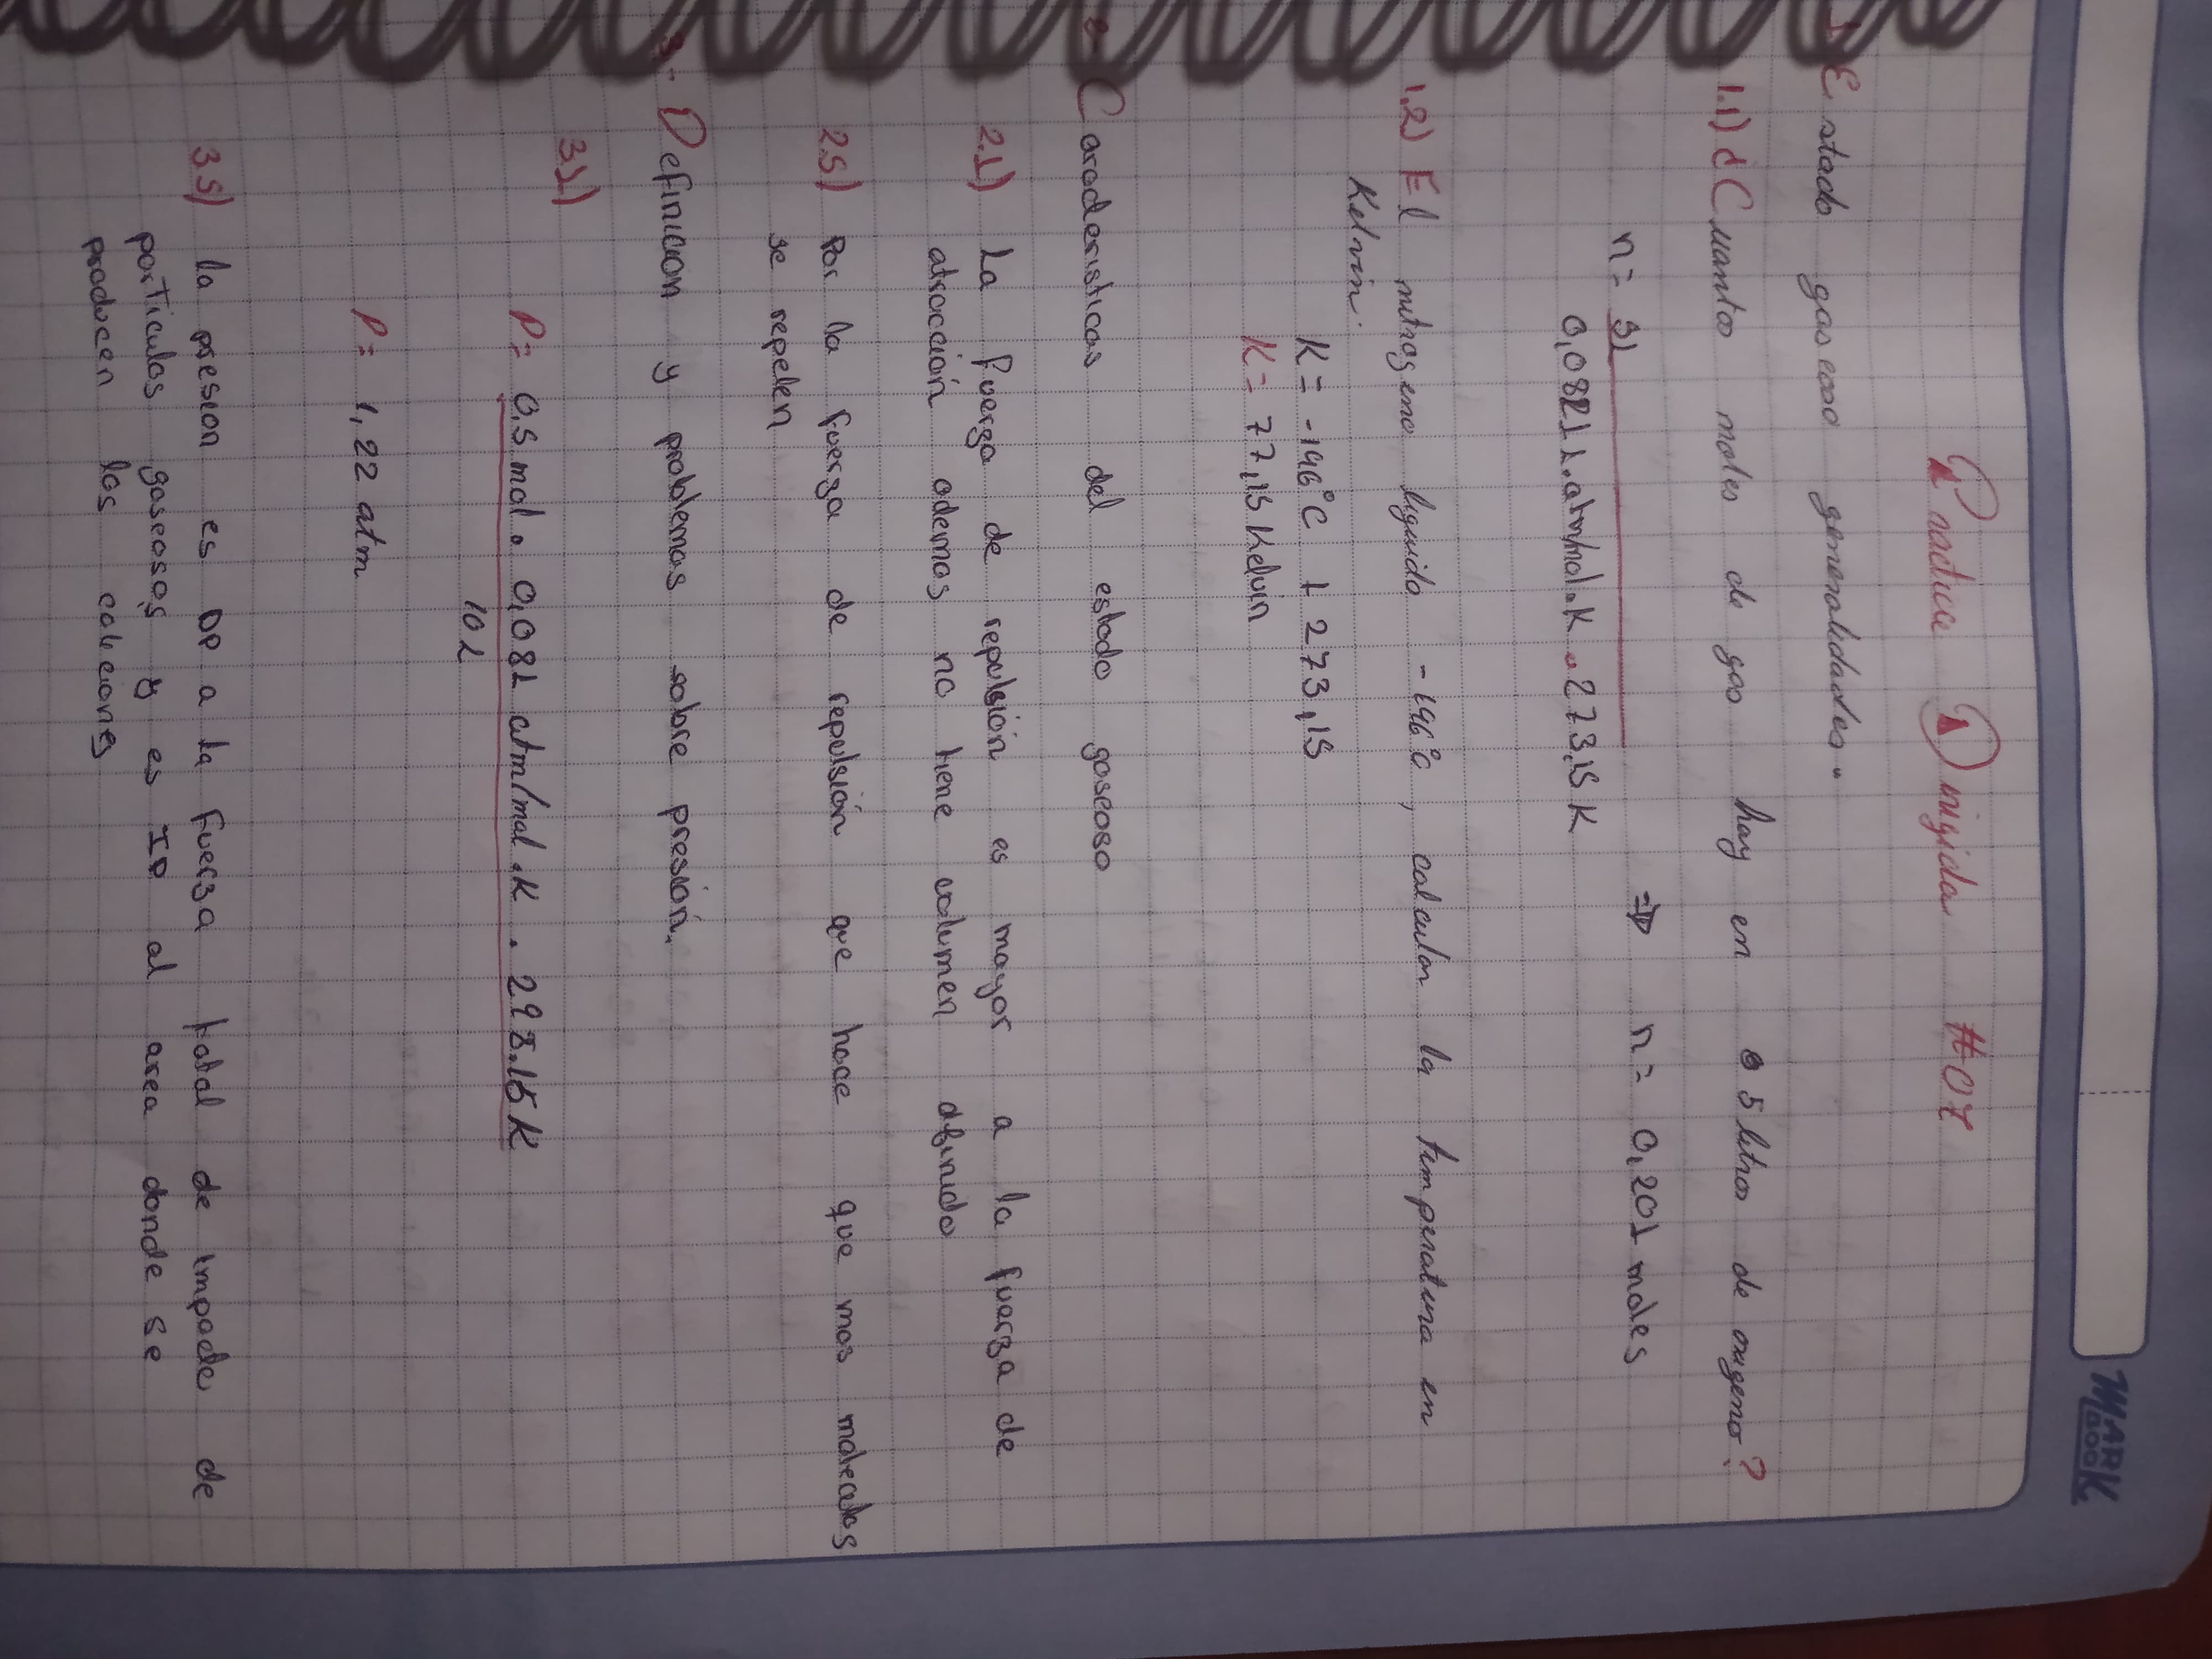 Practica Dirigida #07
1- Estado gaseoso generalidades"
1.1) ¿Cuantos moles de gas hay en 5 litros de oxigeno?
n = 5l ⇒ n = 0,201 moles
0,082 L.atm/mol.K . 273,15 K
1.2) El nitrogeno liquido -196°C, calcular la temperatura en
Kelvin.
K = -196°C + 273,15
K = 77,15 Kelvin
2- Caracteristicas del estado gaseoso
2.1) La fuerza de repulsión es mayor a la fuerza de
atracción ademas no tiene volumen definido
2.5) Por la fuerza de repulsión que hace que mas moleculas
se repelen
3- Definicion y problemas sobre presión.
3.1)
P = 0,5 mol . 0,082 atm/mol.K . 298.15 K
10 L
P = 1,22 atm
3.5) la presion es DP a la fuerza total de impacto de
particulas gaseosas y es IP al area donde se
producen las coleciones
MARK
BOOK